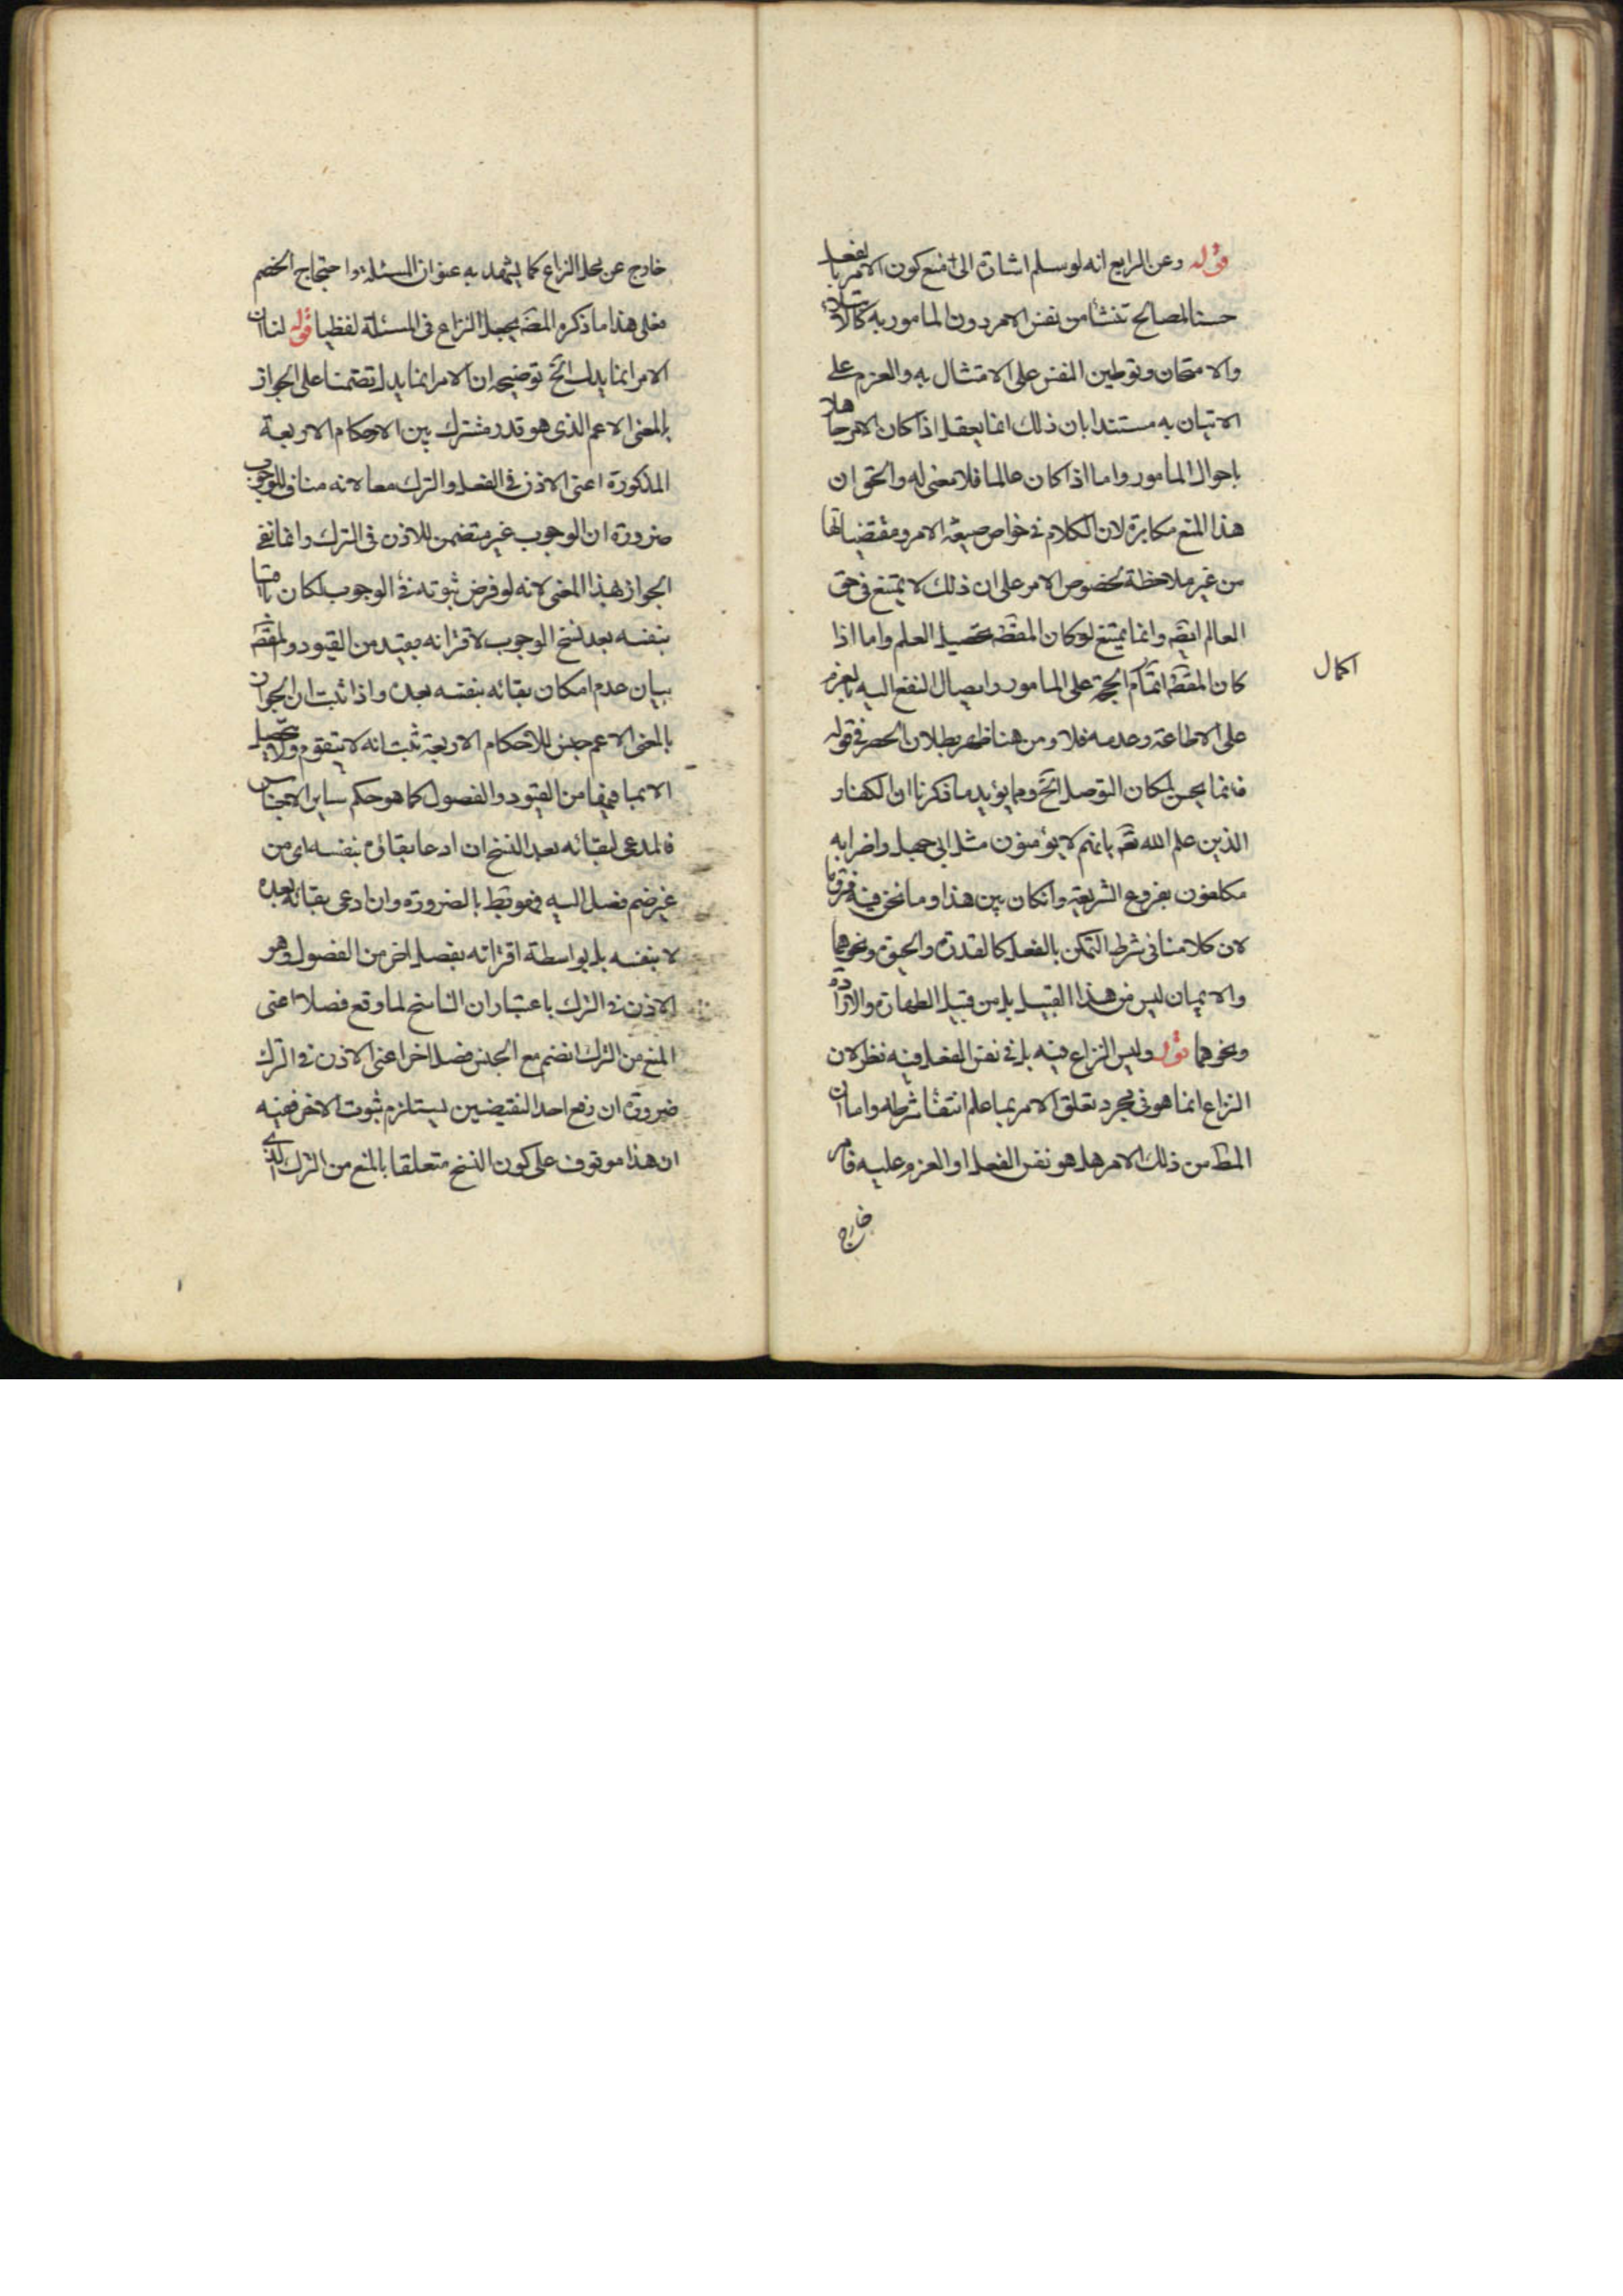 قوله وعن الرابع انه لو سلم اشارة الى منع كون الامر بالفعل
حسنا لمصالح تنشأ من نفس الامر دون المامور به كالابتلاء
والامتحان وتوطين النفس على الامتثال به والعزم على
الاتيان به مستندا بان ذلك انما يعقل اذا كان الامر جاهلا
باحوال المأمور واما اذا كان عالما فلا معنى له والحق ان
هذا المنع مكابرة لان الكلام في خواص صيغة الامر ومقتضياتها
من غير ملاحظة لخصوص الامر على ان ذلك لا يمتنع في حق
العالم ايضه وانما يمتنع لو كان المقصه تحصيل العلم واما اذا
كان المقصه اتمام الحجة على المامور وايصال النفع اليه بالعزم
اكمال
على الاطاعة وعدمه فلا ومن هنا ظهر بطلان الحصر في قوله
فانما يحسن لمكان التوصل الخ ومما يؤيد ما ذكرنا ان الكفار
الذين علم الله تعه بانهم لا يؤمنون مثل ابي جهل واضرابه
مكلفون بفروع الشريعة وانكان بين هذا وما نحن فيه فرق ما
لان كلامنا في شرط التمكن بالفعل كالقدرة والحيوة ونحوهما
والايمان ليس من هذا القبيل بل من قبيل الطهارة والارادة
ونحوهما قوله وليس النزاع فيه بل في نفس الفعل فيه نظر لان
النزاع انما هو في مجرد تعلق الامر بما علم انتفاء شرطه واما ان
المطه من ذلك الامر هل هو نفس الفعل او العزم عليه فامر
خارج
خارج عن محل النزاع كما يشهد به عنوان المسئلة واحتجاج الخصم
فعلى هذا ما ذكره المصه يجعل النزاع في المسئلة لفظيا قوله لنا ان
الامر انما يدل الخ توضيحه ان الامر انما يدل تضمنا على الجواز
بالمعنى الاعم الذي هو قدر مشترك بين الاحكام الاربعة
المذكورة اعنى الاذن في الفعل والترك معا لانه مناف للوجوب
ضرورة ان الوجوب غير متضمن للاذن في الترك وانما نفى
الجواز هذا المعنى لانه لو فرض ثبوته في الوجوب لكان باقيا
بنفسه بعد نسخ الوجوب لاقترانه بقيد من القيود والمقصه
بيان عدم امكان بقائه بنفسه بعده واذا ثبت ان الجواز
بالمعنى الاعم جنس للاحكام الاربعة ثبت انه لا يتقوم ولا يتحصل
الا بما فيها من القيود والفصول كما هو حكم ساير الاجناس
فالمدعى لبقائه بعد النسخ ان ادعا بقاؤه بنفسه اى من
غير ضم فصل اليه فهو بط بالضرورة وان ادعى بقائه بعده
لا بنفسه بل بواسطة اقترانه بفصل اخر من الفصول وهو
الاذن في الترك باعتبار ان الناسخ لما وقع فصلا اعنى
المنع من الترك انضم مع الجنس فصلا اخر اعنى الاذن في الترك
ضرورة ان رفع احد النقيضين يستلزم ثبوت الاخر ففيه
ان هذا موقوف على كون النسخ متعلقا بالمنع من الترك الذي